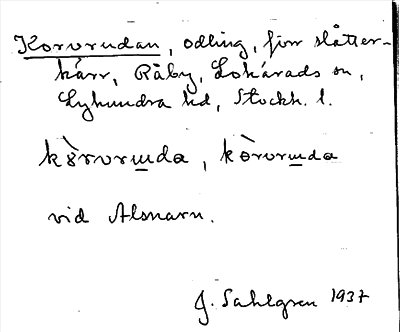 Korvrudan, odling, förr slåtter-
kärr, Råby, Lohärads sn,
Lyhundra hd, Stockh. l.
kòrvruda, kòrvruda
vid Alsnaren.
J. Sahlgren 1937